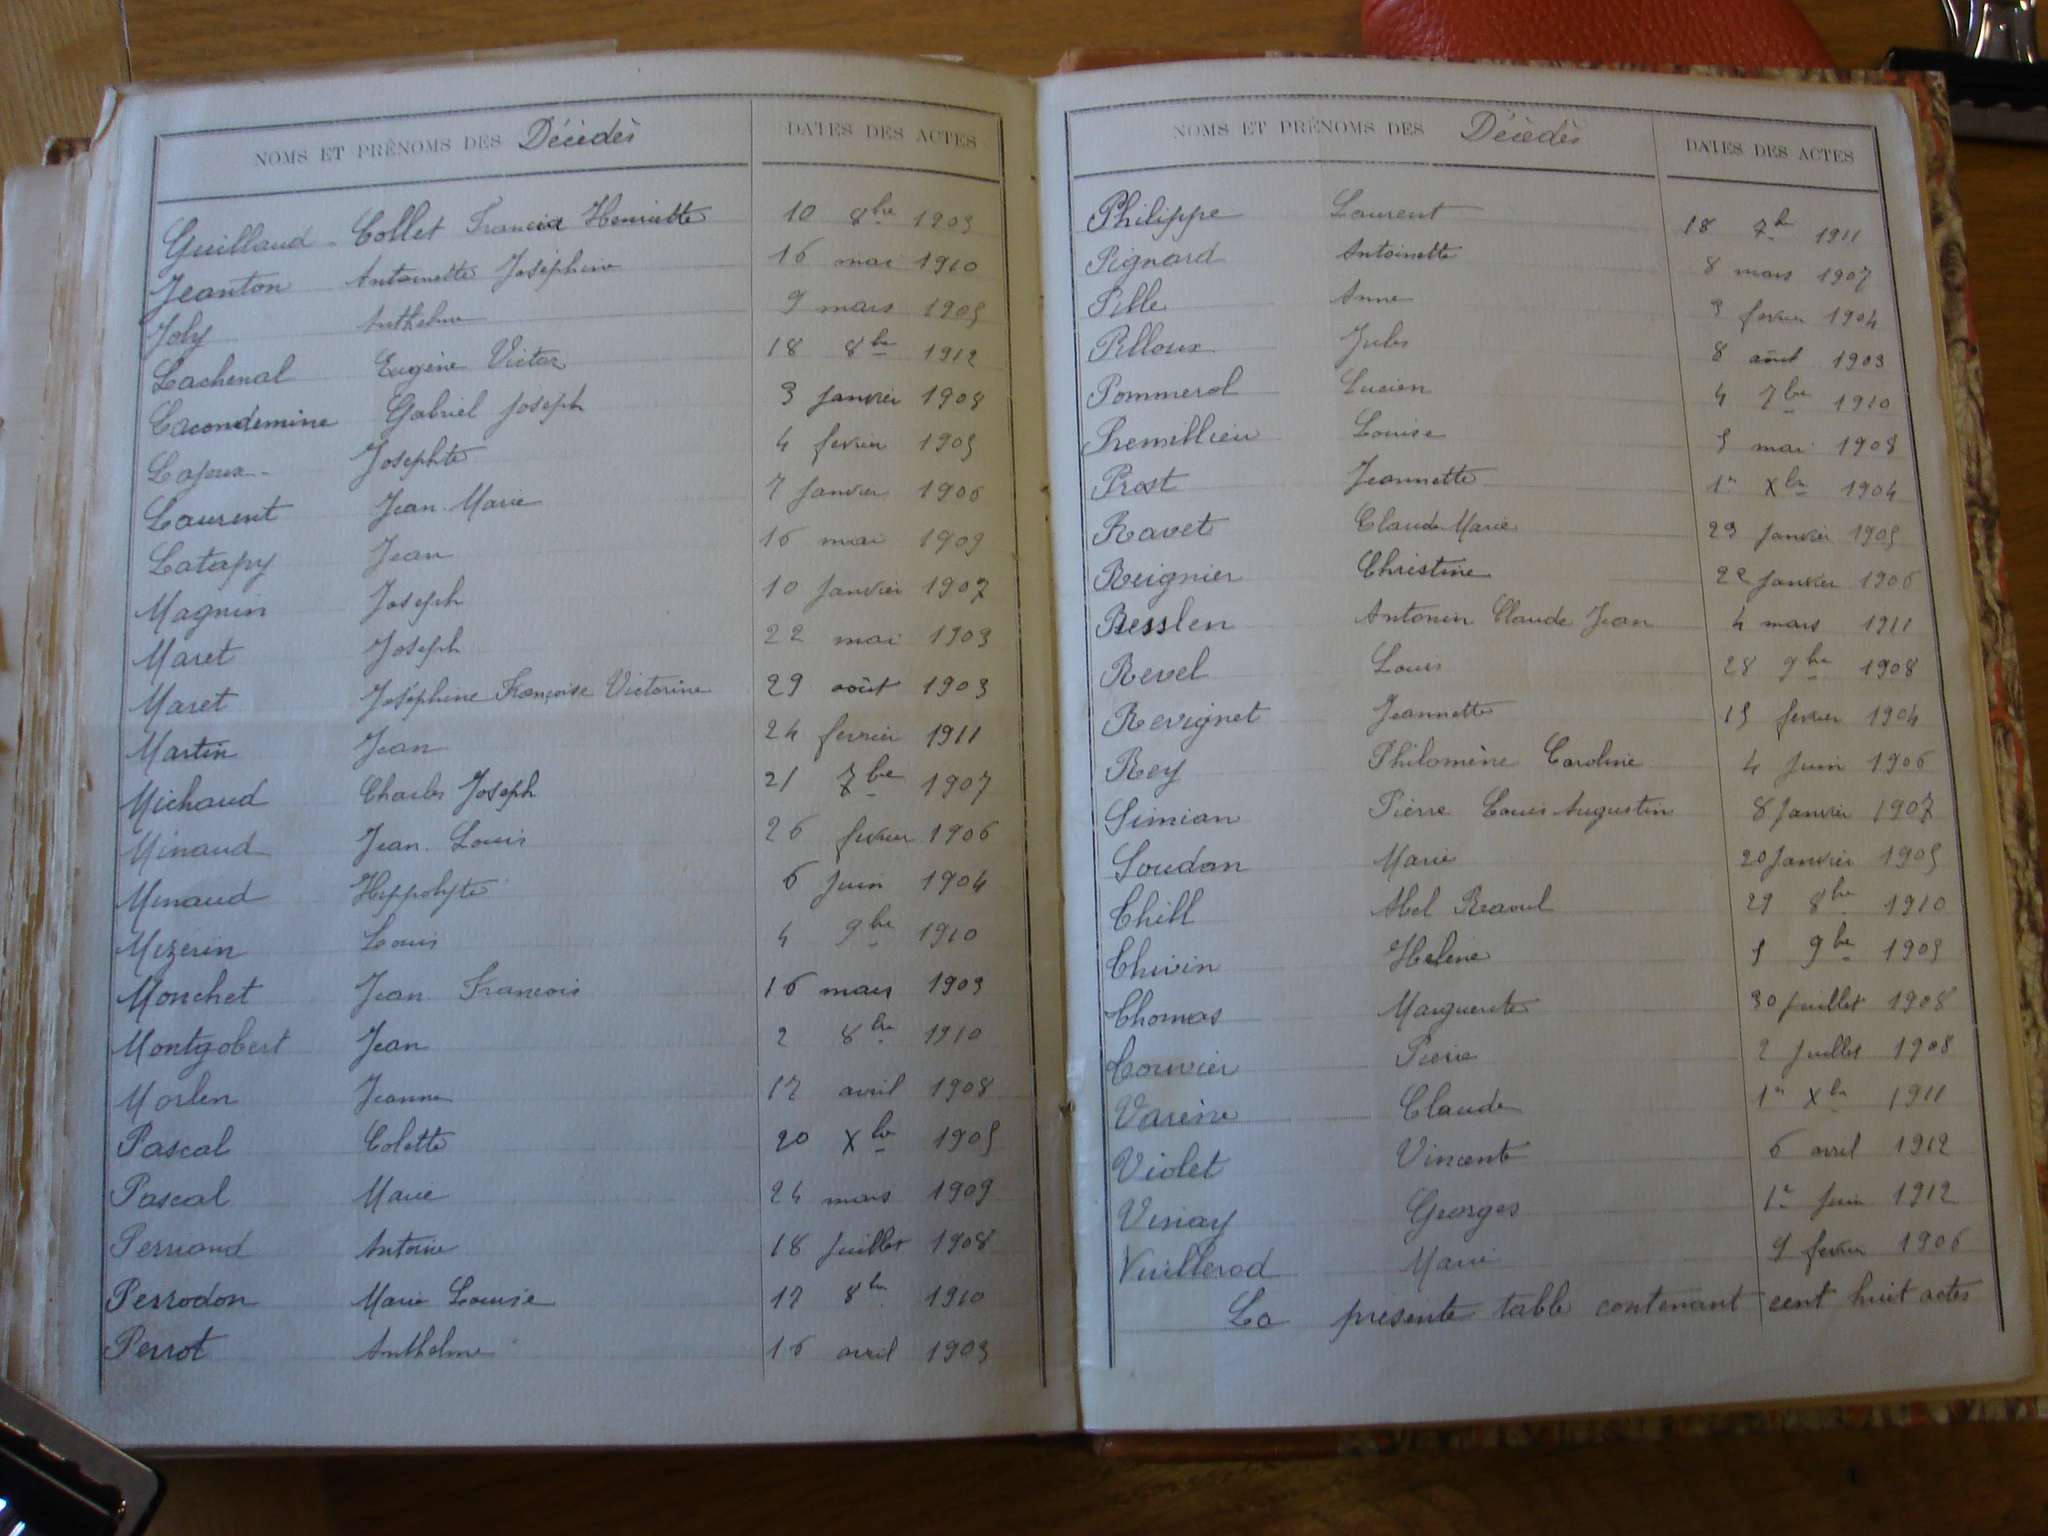 NOMS ET PRÉNOMS DES Décédés DATES DES ACTES
Guillaud - Collet Francia Henriette 10 8bre 1903
Jeanton Antoinette Joséphine 16 mai 1910
Joly Anthelme 9 mars 1905
Lachenal Eugène Victor 18 8bre 1912
Lacondemine Gabriel Joseph 3 Janvier 1908
Lajoux Josephte 4 fevrier 1905
Laurent Jean-Marie 7 Janvier 1906
Latapy Jean 16 mai 1909
Magnin Joseph 10 Janvier 1907
Maret Joseph 22 mai 1903
Maret Joséphine Françoise Victorine 29 août 1903
Martin Jean 24 fevrier 1911
Michaud Charles Joseph 21 7bre 1907
Minaud Jean Louis 26 fevrier 1906
Minaud Hippolyte 6 Juin 1904
Mizerin Louis 4 9bre 1910
Monchet Jean François 16 mars 1903
Montgobert Jean 2 8bre 1910
Morlen Jeanne 17 avril 1908
Pascal Colette 20 Xbre 1905
Pascal Marie 24 mars 1909
Perriand Antoine 18 Juillet 1908
Perrodon Marie Louise 17 8bre 1910
Perrot Anthelme 16 avril 1903
NOMS ET PRÉNOMS DES Décédés DATES DES ACTES
Philippe Laurent 18 7bre 1911
Pignard Antoinette 8 mars 1907
Pille Anne 3 fevrier 1904
Pilloux Jules 8 août 1903
Pommerol Lucien 4 7bre 1910
Premillieu Louise 5 mai 1908
Prost Jeannette 1er Xbre 1904
Ravet Claude Marie 23 Janvier 1905
Reignier Christine 22 Janvier 1906
Resslen Antonin Claude Jean 4 mars 1911
Revel Louis 28 9bre 1908
Revignet Jeannette 15 fevrier 1904
Rey Philomène Caroline 4 Juin 1906
Simian Pierre Louis Augustin 8 Janvier 1907
Soudan Marie 20 Janvier 1905
Thill Abel Raoul 29 8bre 1910
Thivin Helène 5 9bre 1905
Thomas Marguerite 30 Juillet 1908
Touvier Pierre 2 Juillet 1908
Varène Claude 1er Xbre 1911
Violet Vincente 6 avril 1912
Vinay Georges 1er Juin 1912
Vuillerod Marie 9 fevrier 1906
La présente table contenant cent huit actes